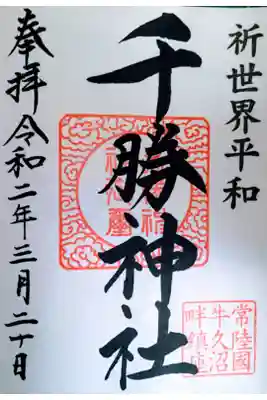 祈世界平和
千勝神社
奉拝令和二年三月二十日
常陸國
牛久沼
畔鎮座